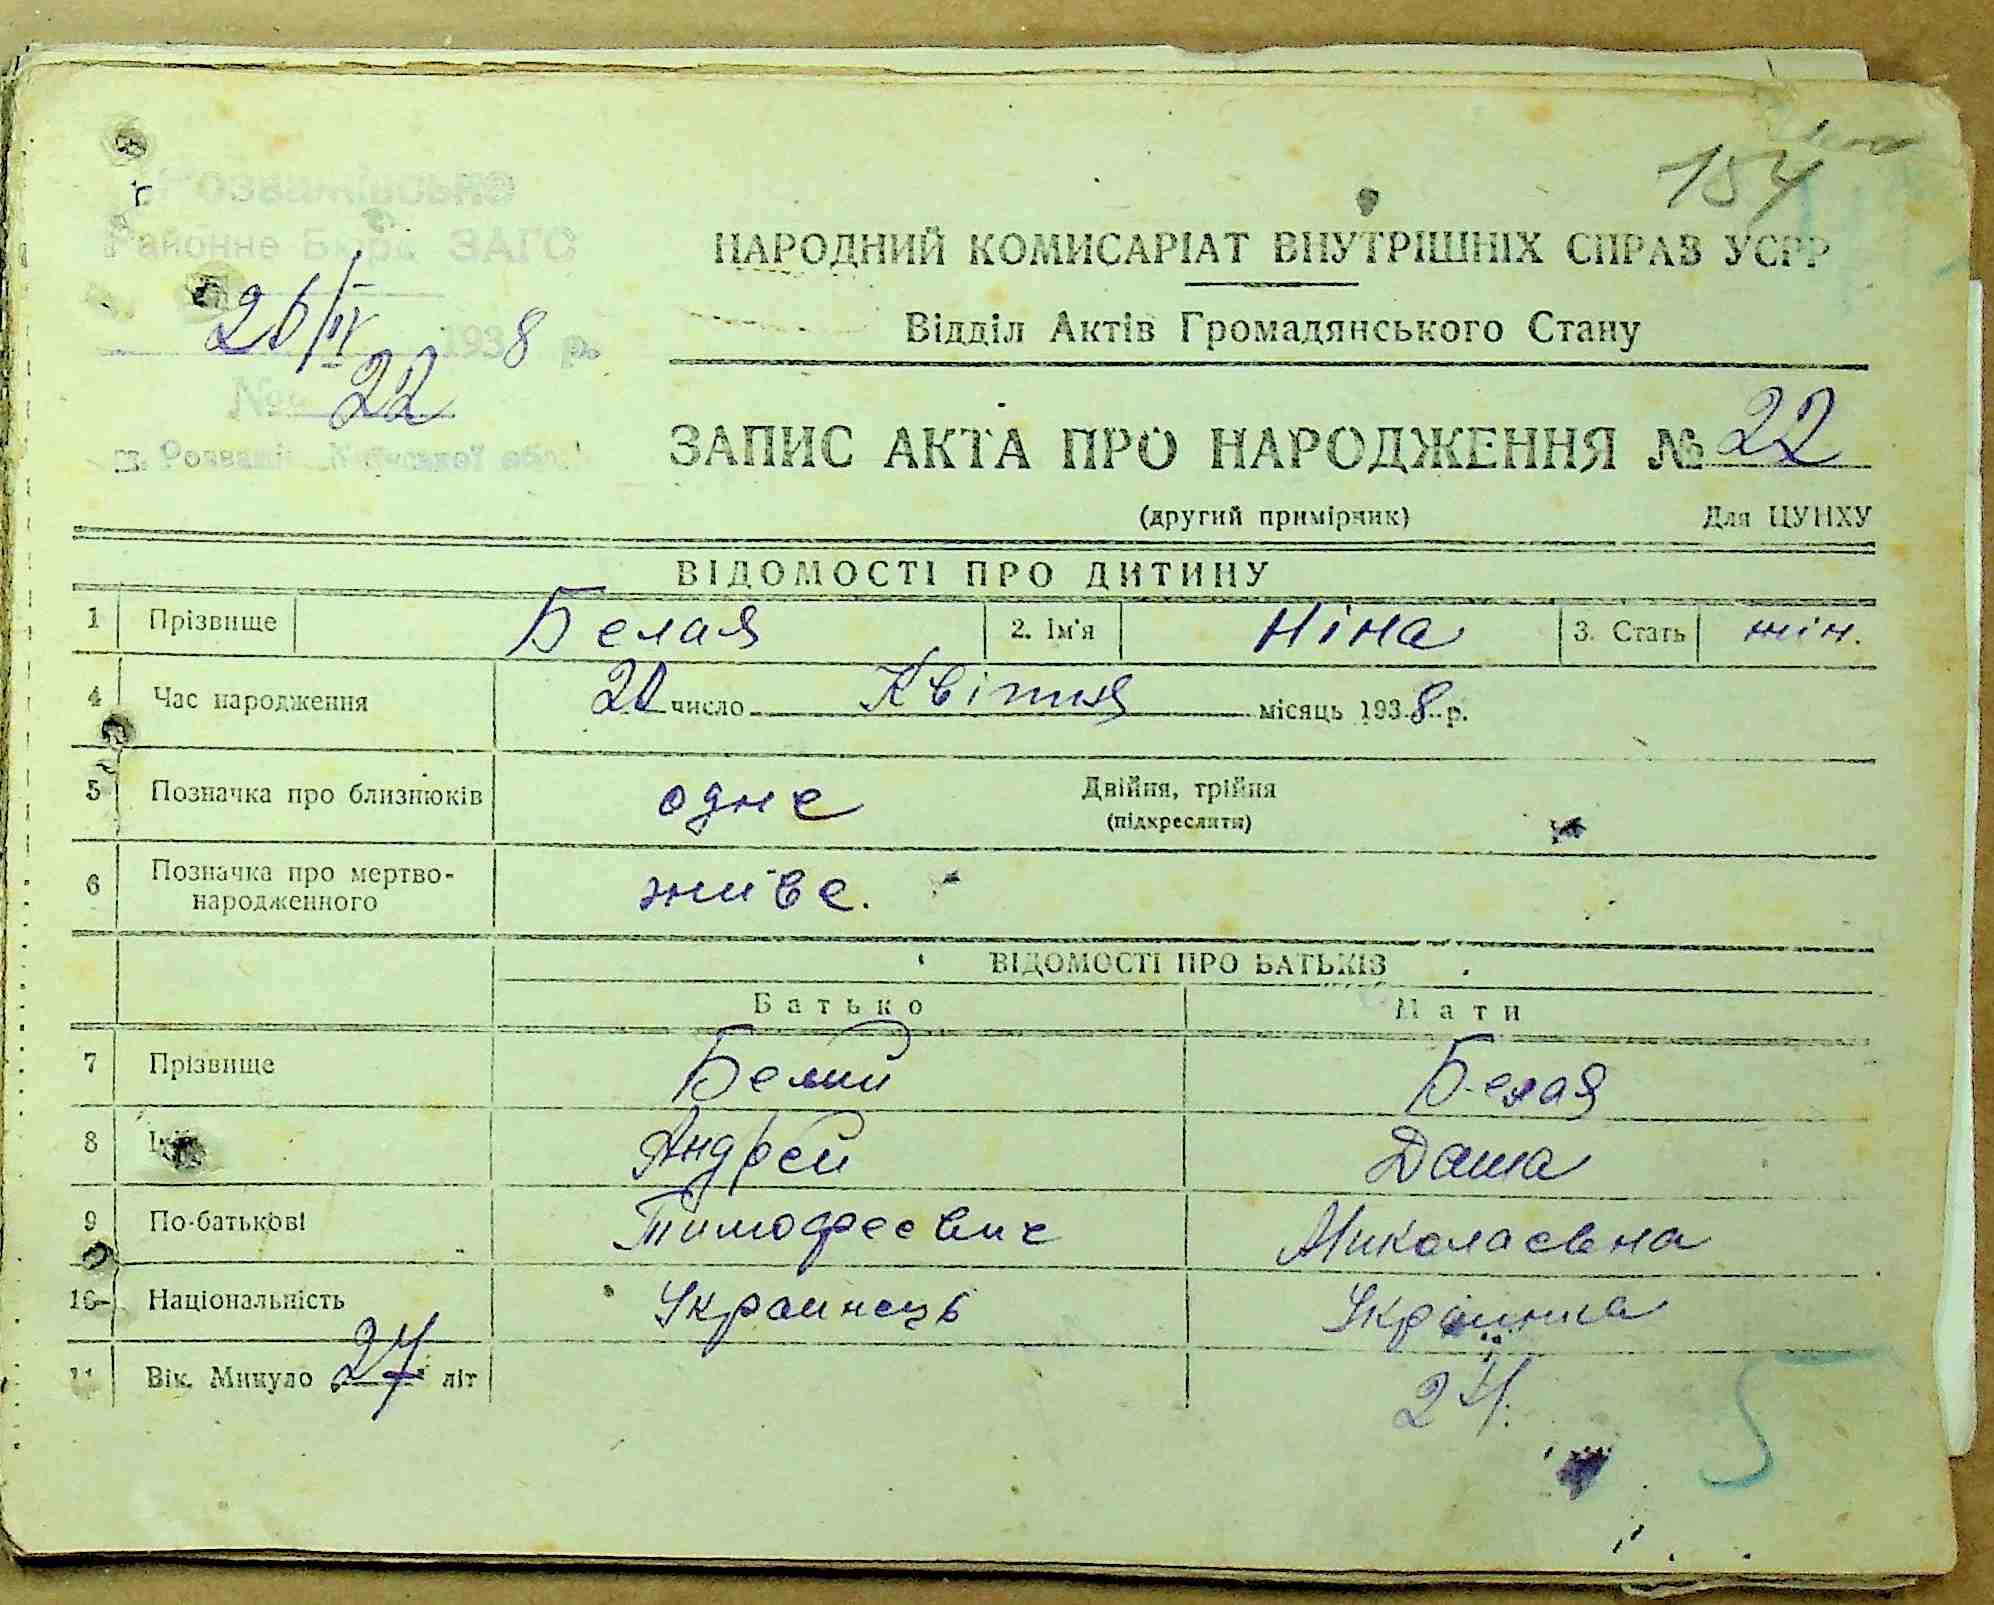 154
Розважівське
Районне Бюро ЗАГС
26/IV 1938 р.
№ 22
м. Розважів Київської обл.
НАРОДНИЙ КОМИСАРІАТ ВНУТРІШНІХ СПРАВ УСРР
Відділ Актів Громадянського Стану
ЗАПИС АКТА ПРО НАРОДЖЕННЯ № 22
(другий примірник) Для ЦУНХУ
ВІДОМОСТІ ПРО ДИТИНУ
1 Прізвище Белая 2. Ім'я Ніна 3. Стать жін.
4 Час народження число Квітня місяць 1938 р.
5 Позначка про близнюків одне Двійня, трійня
(підкреслити)
6 Позначка про мертво-
народженного живе.
ВІДОМОСТІ ПРО БАТЬКІВ
Батько Мати
7 Прізвище Белий Белая
8 Андрей Даша
9 По-батькові Тимофеевич Миколаевна
10 Національність Украинець Украинка
11 Вік. Минуло 27 літ 24.
5